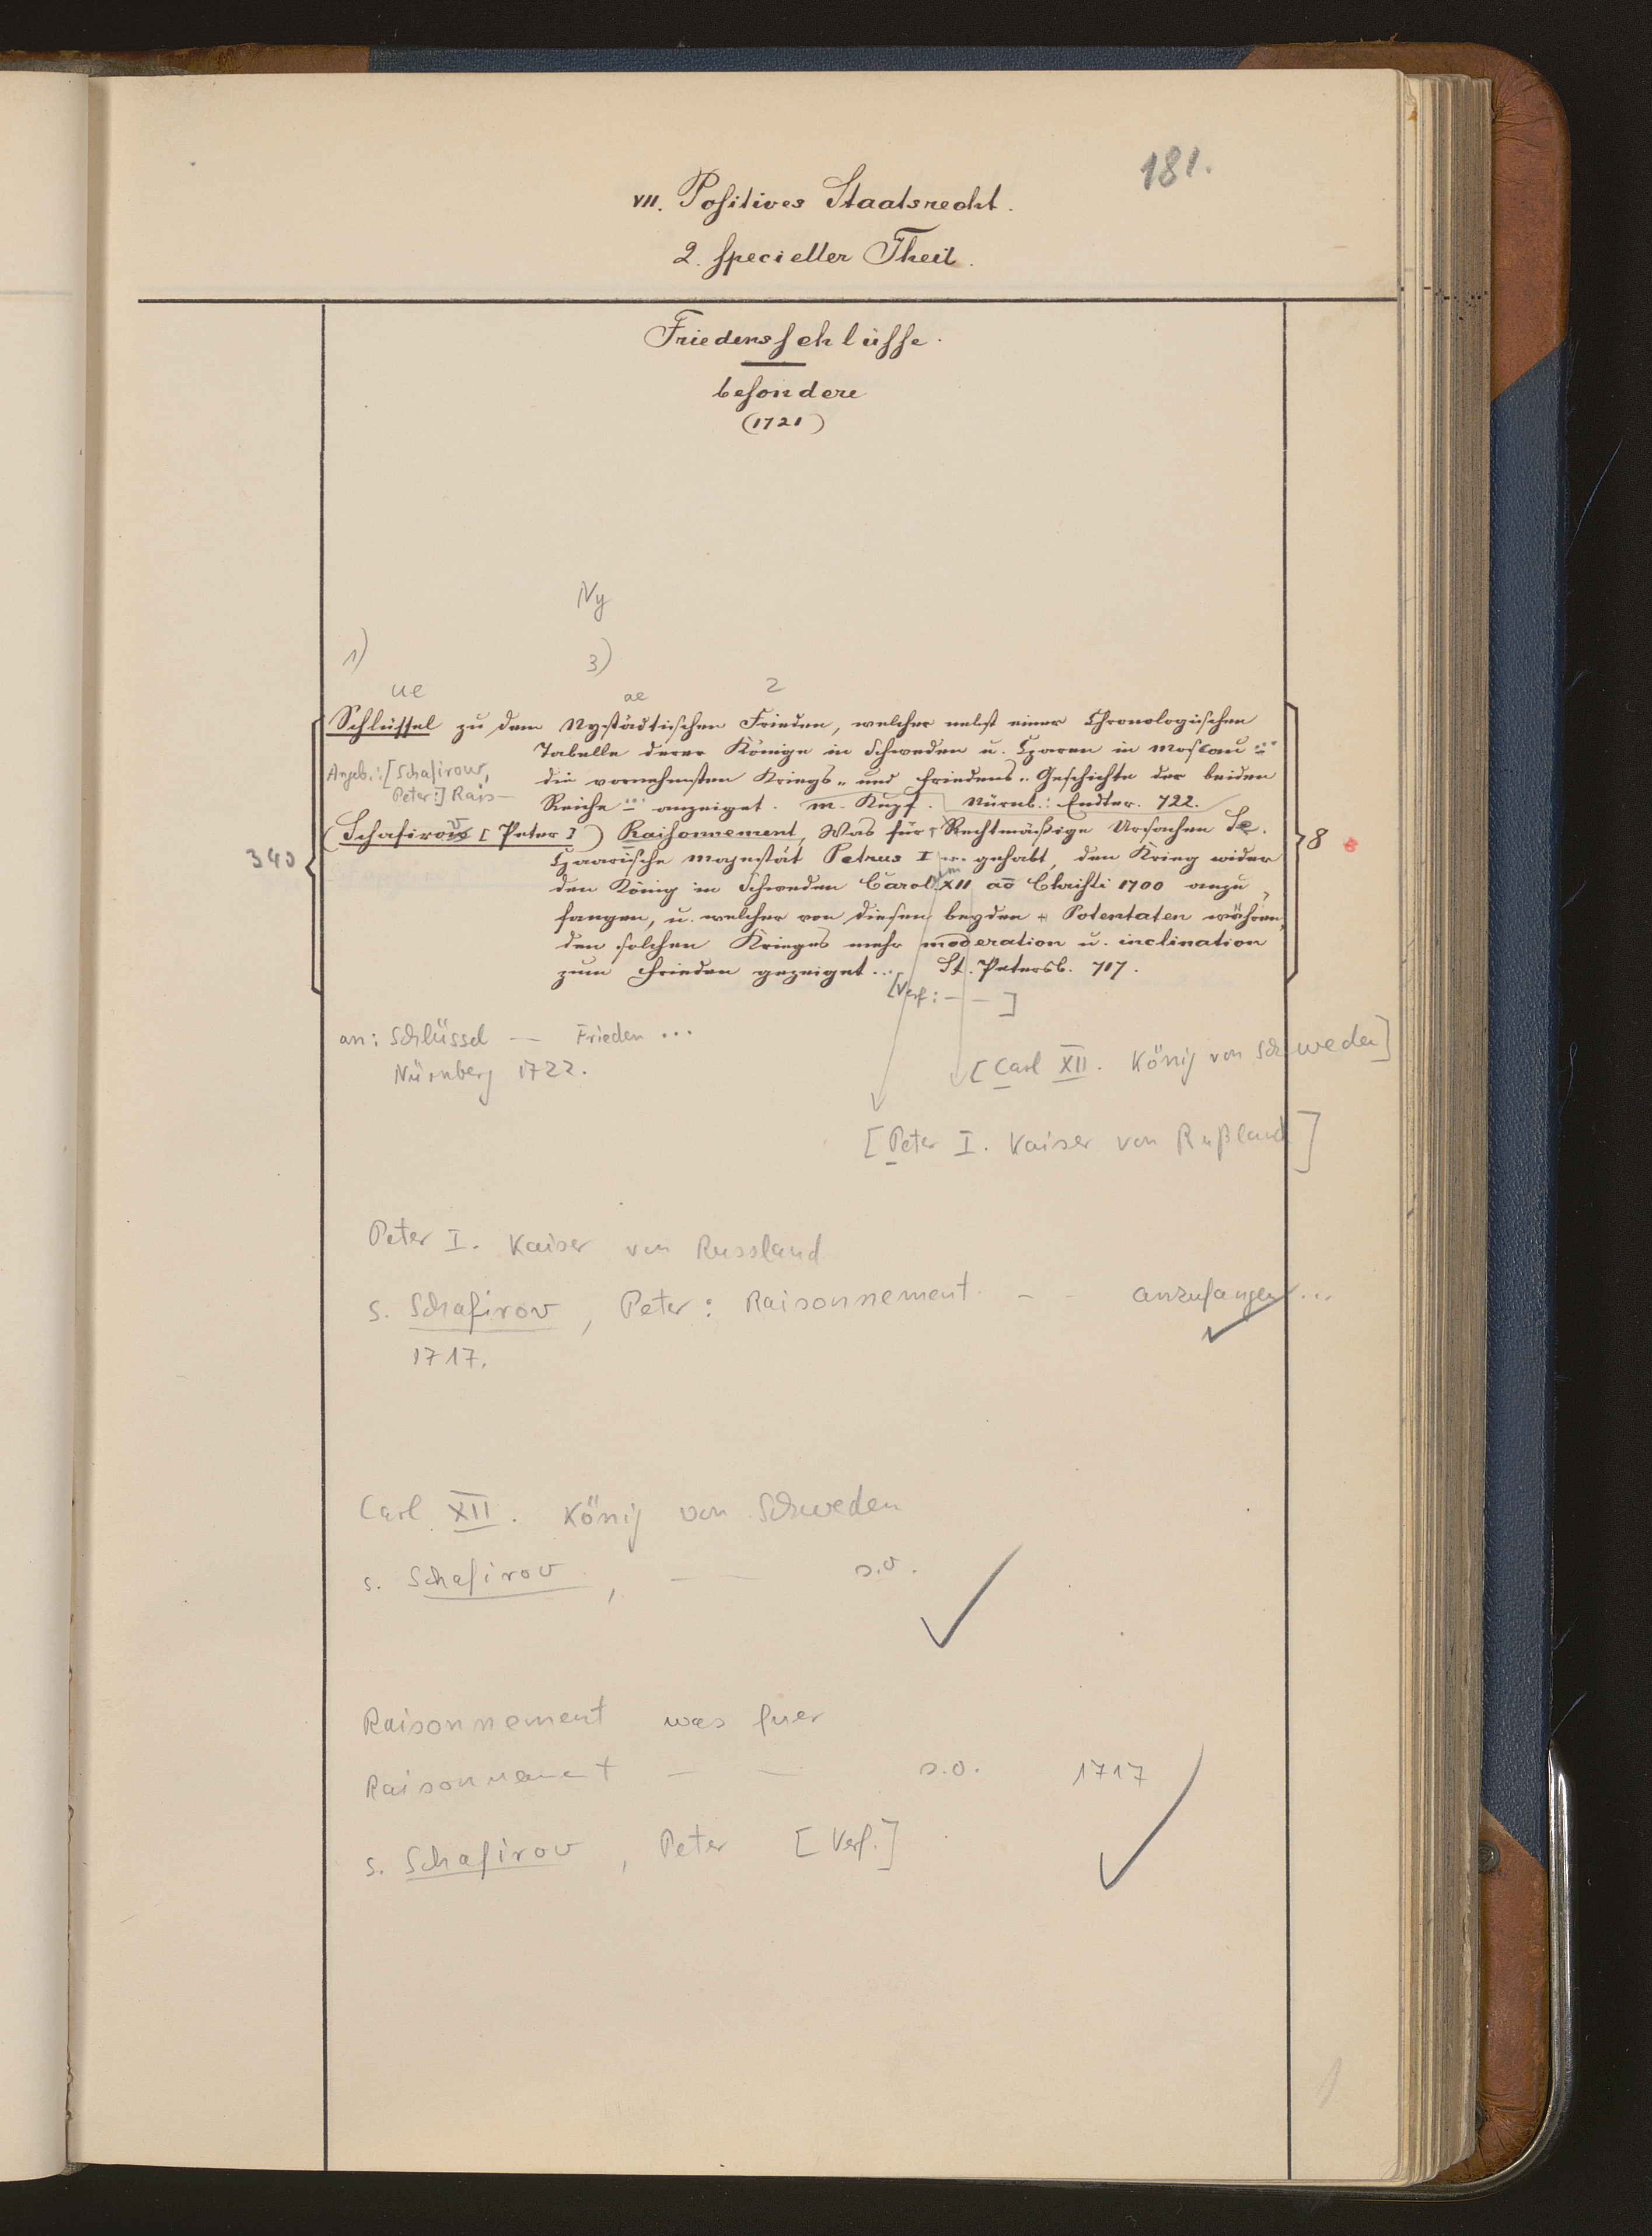 181.
VII. Positives Staatsrecht.
2. specieller Theil.
Friedensschlüsse.
besondere
(1721)
Ny
1) 3)
ue ae 2
Schlüssel zu dem Nystädtischen Frieden, welcher nebst einer Chronologischen
Tabelle derer Könige in Schweden u. Czaren in Moscau ...
die vornehmsten Kriegs- und Friedens-Geschichte der beiden
Reiche ... anzeiget. m. Kupf. Nürnb.: Endter. 722.
Angeb.: [Schafirow,
Peter:] Rais—
(Schafirov [Peter]) Raisonnement, Was für Rechtmäßige Ursachen Se.
340
8
Czaarische Majestät Petrus I ... gehabt, den Krieg wider
den König in Schweden Carol XII ao Christi 1700 anzu-
fangen, u. welcher von diesen beyden + Potentaten währen-
den solchen Krieges mehr moderation u. inclination
zum Frieden gezeiget... St. Petersb. 717.
[Verf: — — ]
an: Schlüssel — Frieden ...
Nürnberg 1722.
[Carl XII. König von Schweden]
[Peter I. Kaiser von Rußland]
Peter I. Kaiser von Russland
s. Schafirov, Peter: Raisonnement - - anzufangen ...
1717.
Carl XII. König von Schweden
s. Schafirov, — — s.o.
Raisonnement was fuer
Raisonnement — — s.o. 1717
s. Schafirov, Peter [Verf.]
1